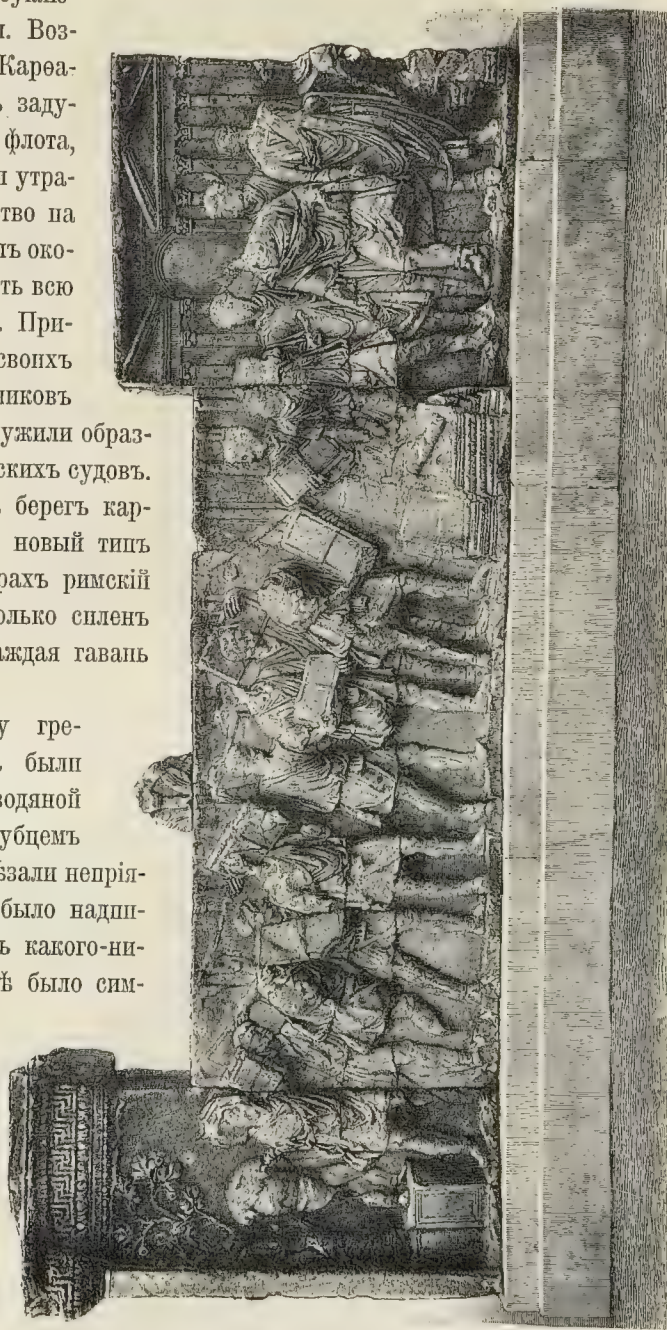 и. Воз-
Карѳа-
ь заду-
флота,
и утра-
ство на
ть всю
. При-
своихъ
никовъ
ужили образ-
скихъ судовъ.
берегъ кар-
новый типъ
рахъ римскій
олько силенъ
аждая гавань
у гре-
были
водяной
убцемъ
ѣзали непрія-
было надпи-
ь какого-ни-
ѣ было сим-